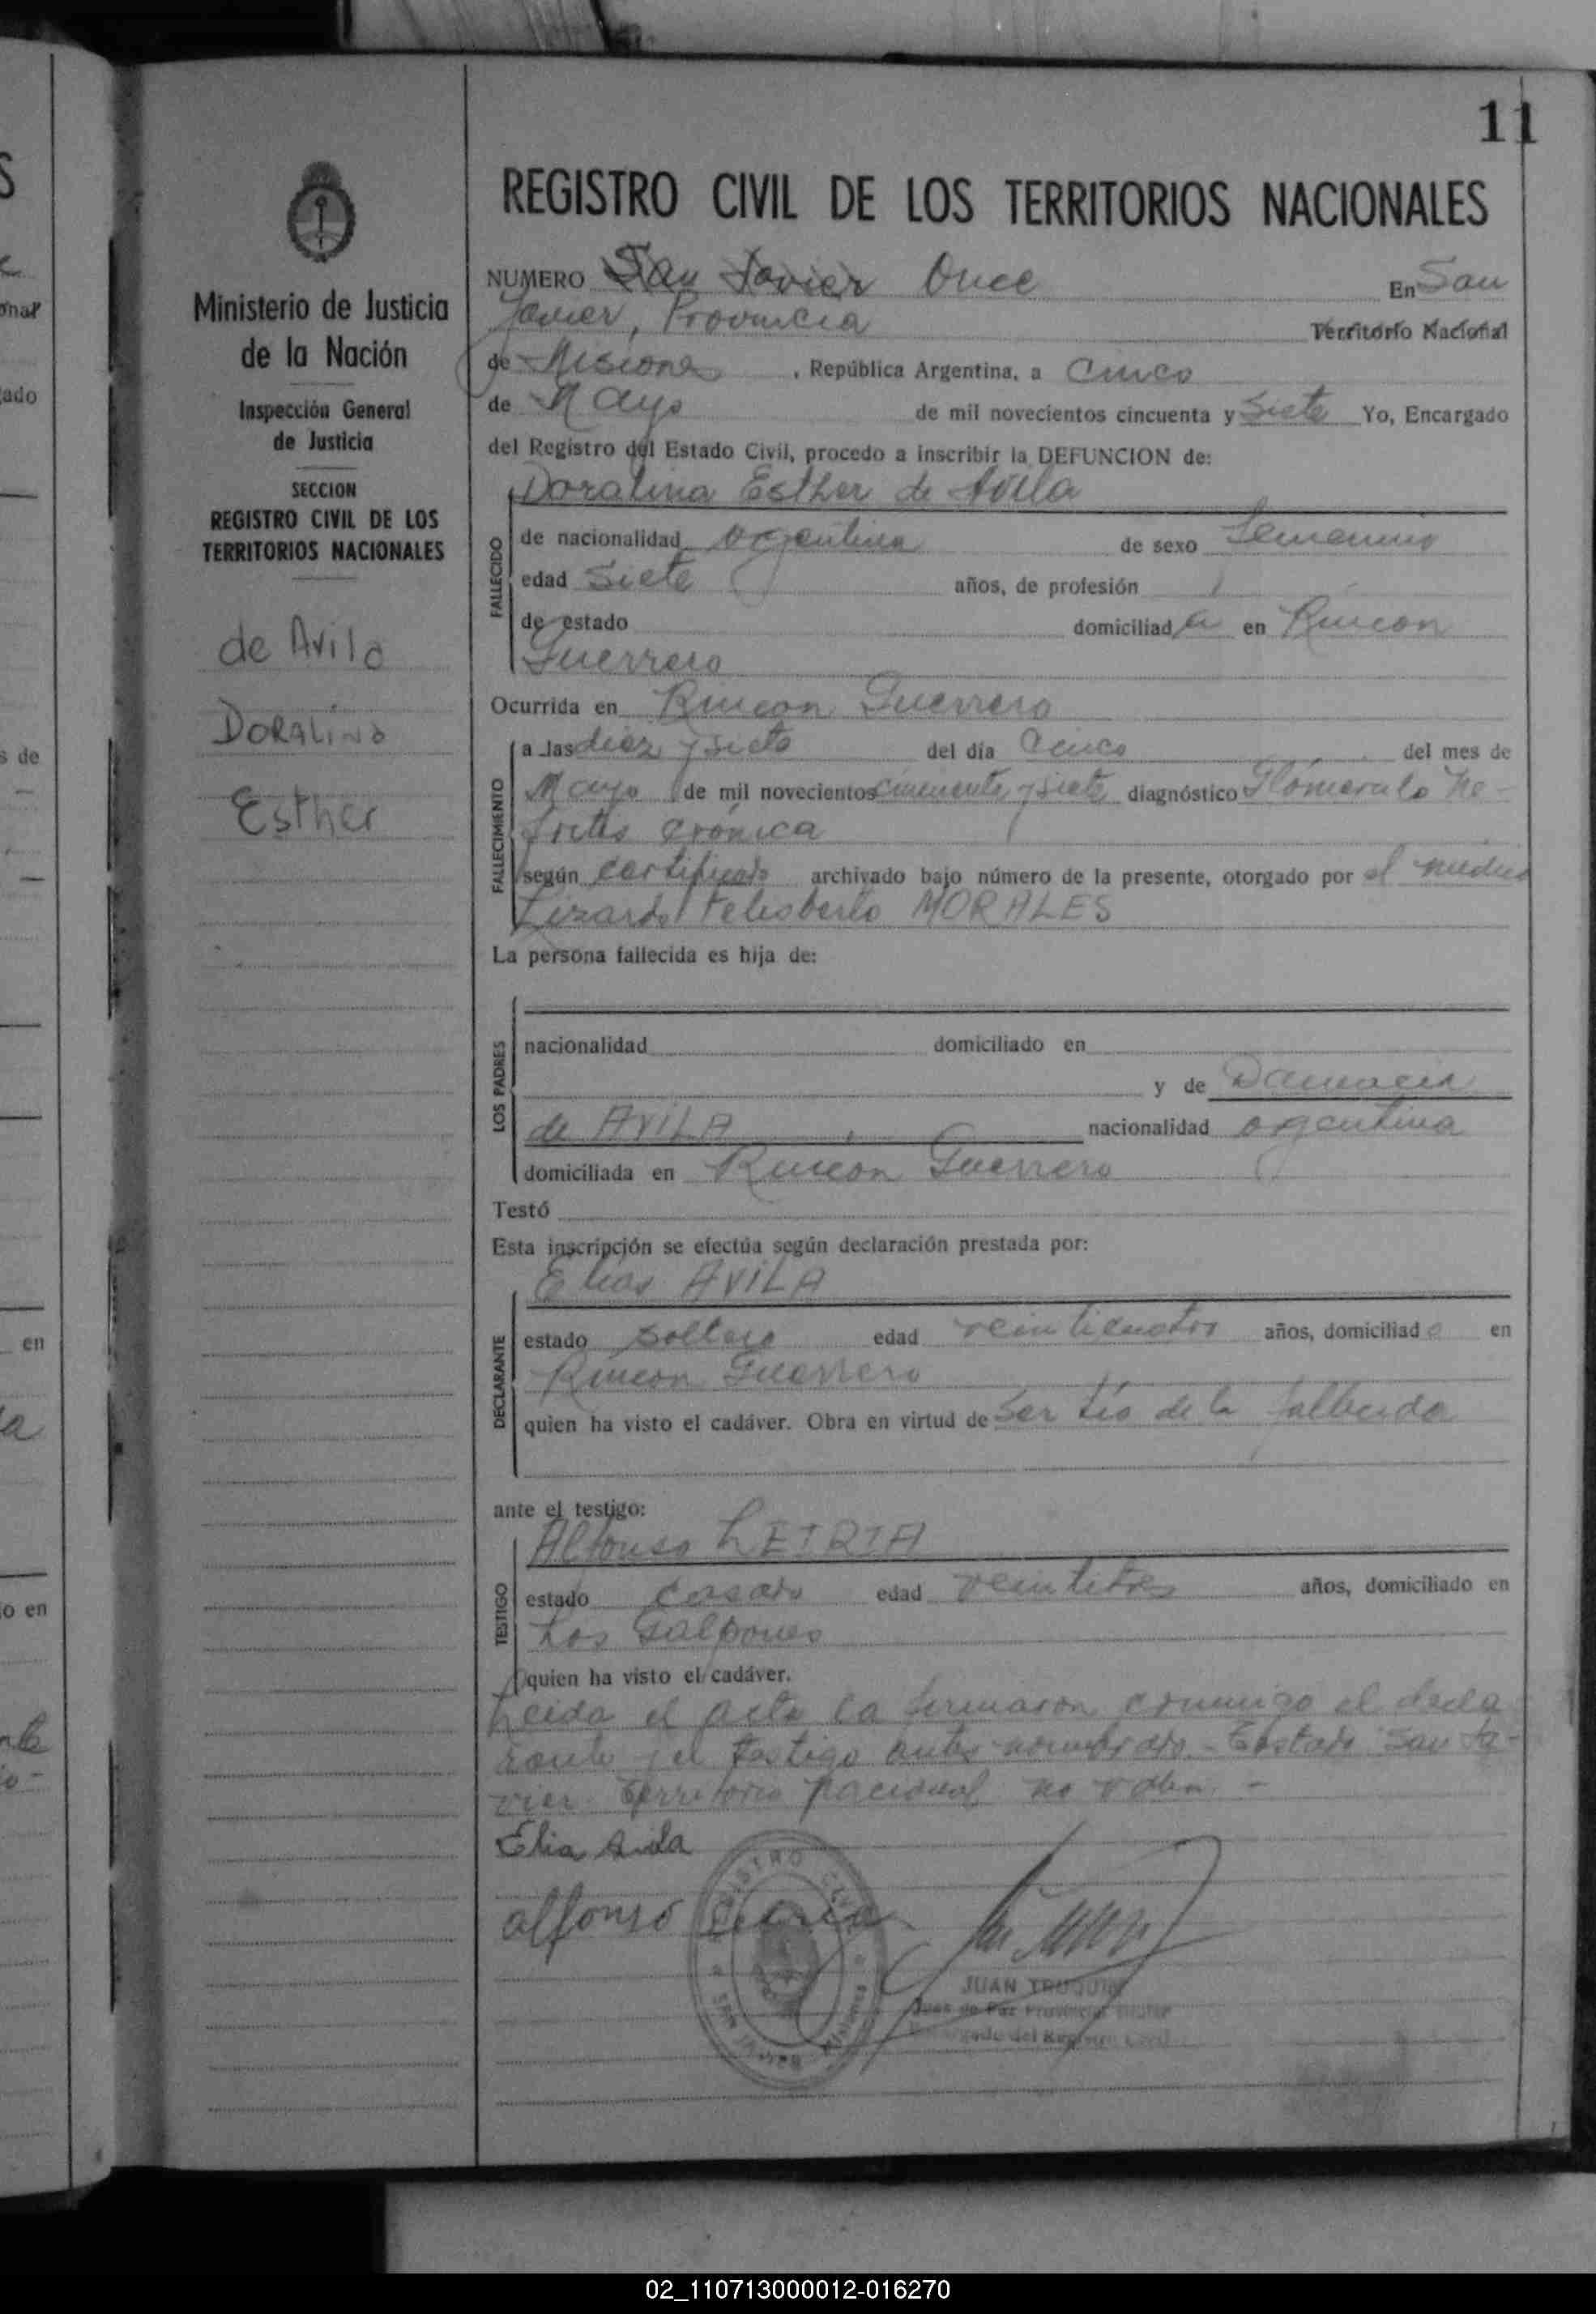 11
REGISTRO CIVIL DE LOS TERRITORIOS NACIONALES
Ministerio de Justicia
de la Nación
Inspección General
de Justicia
SECCION
REGISTRO CIVIL DE LOS
TERRITORIOS NACIONALES
de Avila
Doralina
Esther
NUMERO San Javier Once En San
Javier, Provincia Territorio Nacional
de Misiones, República Argentina, a Cinco
de Mayo de mil novecientos cincuenta y Siete Yo, Encargado
del Registro del Estado Civil, procedo a inscribir la DEFUNCION de:
Doralina Esther de Avila
FALLECIDO
de nacionalidad argentina de sexo femenino
edad Siete años, de profesión
de estado domiciliada en Rincon
Guerrero
Ocurrida en Rincon Guerrero
FALLECIMIENTO
a las diez y siete del día Cinco del mes de
Mayo de mil novecientos cincuenta y siete diagnóstico Glómerulo ne-
fritis crónica
según certificado archivado bajo número de la presente, otorgado por el médico
Lizardo Felisberto MORALES
La persona fallecida es hija de:
LOS PADRES
nacionalidad domiciliado en
y de Damacia
de AVILA nacionalidad argentina
domiciliada en Rincon Guerrero
Testó
Esta inscripción se efectúa según declaración prestada por:
Elias AVILA
DECLARANTE
estado soltero edad veinticuatro años, domiciliado en
Rincon Guerrero
quien ha visto el cadáver. Obra en virtud de ser tío de la fallecida
ante el testigo:
Alfonso LEIRIA
TESTIGO
estado casado edad veintitres años, domiciliado en
Los Galpones
quien ha visto el cadáver.
Leida el acta la firmaron conmigo el decla
rante y el testigo antes nombrado. - Testado: San Ja-
vier. Territorio Nacional no valen. -
Elia Avila
alfonso Leiria
REGISTRO CIVIL
SAN JAVIER Misiones
JUAN
Juez de Paz
Encargado del Registro Civil
02_110713000012-016270